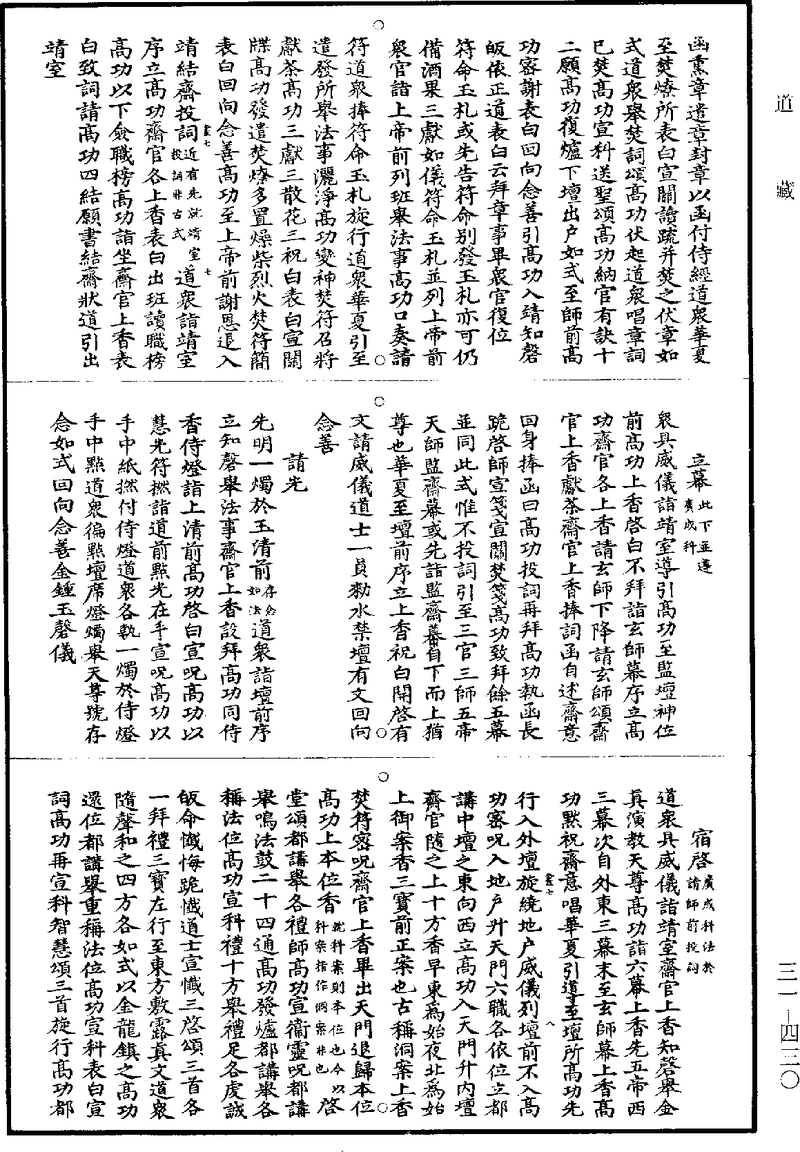 道藏
三一—四三〇
函熏章遣章封章以函付侍經道衆華夏
至焚燎所表白宣關讀疏并焚之伏章如
式道衆舉焚詞頌高功伏起道衆唱章詞
已焚高功宣科送聖頌高功納官有訣十
二願高功復爐下壇出户如式至師前高
功密謝表白回向念善引高功入靖知磬
皈依正道表白云拜章事畢衆官復位
符命玉札或先告符命别發玉札亦可仍
備酒果三獻如儀符命玉札並列上帝前
衆官詣上帝前列班舉法事高功口奏請
符道衆捧符命玉札旋行道衆華夏引至
遣發所舉法事灑淨高功變神焚符召將
獻茶高功三獻三散花三祝白表白宣關
牒高功發遣焚燎多置燥柴烈火焚符簡
表白回向念善高功至上帝前謝恩退入
靖結齋投詞近有先就靖室投詞非古式道衆詣靖室
序立高功齋官各上香表白出班讀職榜
高功以下僉職榜高功詣坐齋官上香表
白致詞請高功四結願書結齋狀道引出
靖室
立幕此下並遵廣成科
衆具威儀詣靖室導引高功至監壇神位
前高功上香啓白不拜詣玄師幕序立高
功齋官各上香請玄師下降請玄師頌齋
官上香獻茶齋官上香捧詞函自述齋意
回身捧函曰高功投詞再拜高功執函長
跪啓師宣箋宣關焚箋高功致拜餘五幕
並同此式惟不投詞引至三官三師五帝
天師監齋幕或先詣監齋幕自下而上猶
尊也華夏至壇前序立上香祝白開啓有
文請威儀道士一員勑水禁壇有文回向
念善
請光
先明一燭於玉清前存念如法道衆詣壇前序
立知磬舉法事齋官上香設拜高功同侍
香侍燈詣上清前高功啓白宣呪高功以
慧光符撚詣道前點光在手宣呪高功以
手中紙撚付侍燈道衆各執一燭於侍燈
手中點道衆徧點壇席燈燭舉天尊號存
念如式回向念善金鍾玉磬儀
宿啓廣成科法於請師前投詞
道衆具威儀詣靖室齋官上香知磬舉金
真演教天尊高功詣六幕上香先五帝西
三幕次自外東三幕末至玄師幕上香高
功默祝齋意唱華夏引導至壇所高功先
行入外壇旋繞地户威儀列壇前不入高
功密呪入地户升天門六職各依位立都
講中壇之東向西立高功入天門升内壇
齋官隨之上十方香早東爲始夜北爲始
上御案香三寶前正案也古稱洞案上香
焚符密呪齋官上香畢出天門退歸本位
高功上本位香就科案則本位也今以科案指作洞案非也啓
堂頌都講舉各禮師高功宣衞靈呪都講
舉鳴法鼓二十四通高功發爐都講舉各
稱法位高功宣科禮十方舉禮足各虔誠
皈命懺悔跪懺道士宣懺三啓頌三首各
一拜禮三寶左行至東方敷露真文道衆
隨聲和之四方各如式以金龍鎮之高功
還位都講舉重稱法位高功宣科表白宣
詞高功再宣科智慧頌三首旋行高功都